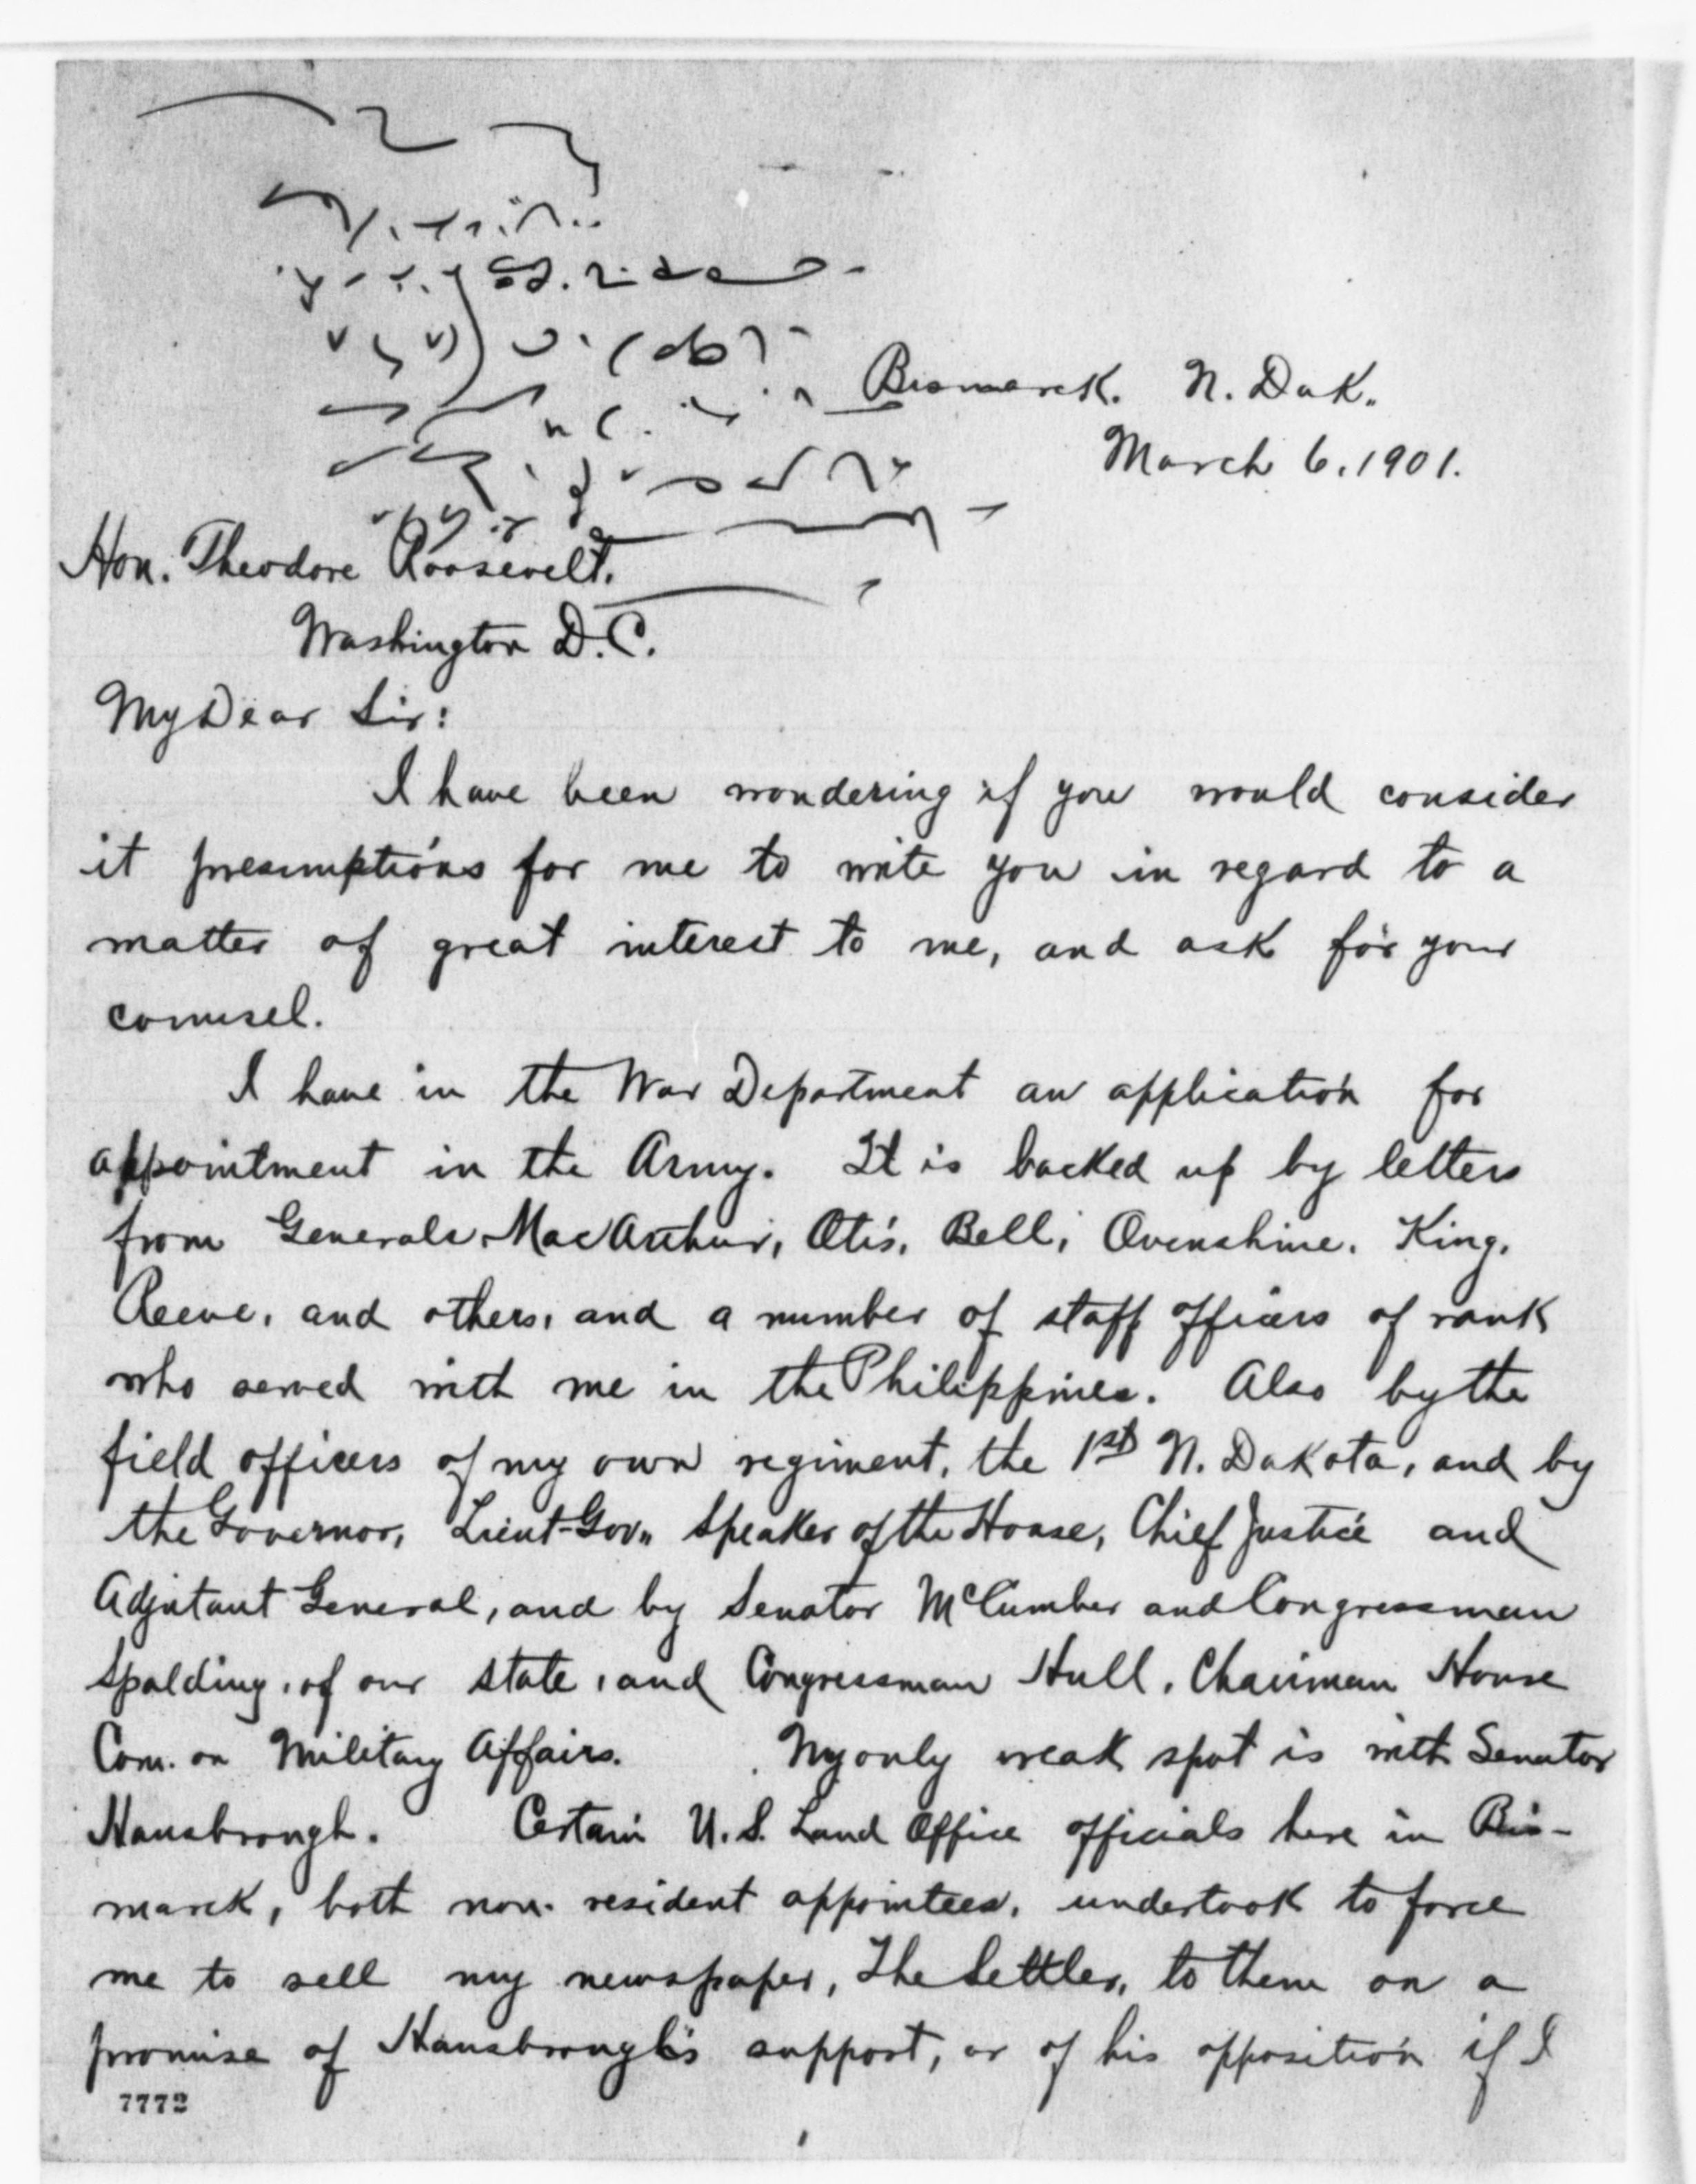 Bismarck. N. Dak.
March 6, 1901.
Hon. Theodore Roosevelt.
Washington D.C.
My Dear Sir:
I have been wondering if you would consider
it presumptions for me to write you in regard to a
matter of great interest to me, and ask for your
counsel.
I have in the War Department an application for
appointment in the Army. It is backed up by letters
from Generals MacArthur, Otis, Bell, Ovenshine, King,
Reeve, and others, and a number of staff officers of rank
who served with me in the Philippines. Also by the
field officers of my own regiment, the 1st N. Dakota, and by
the Governor, Lieut-Gov., Speaker of the House, Chief Justice and
Adjutant General, and by Senator McCumber and Congressman
Spalding, of our state, and Congressman Hull, Chairman House
Com. on Military Affairs. My only weak spot is with Senator
Hansbrough. Certain U.S. Land Office officials here in Bis-
marck, both non-resident appointees, undertook to force
me to sell my newspaper, The Settler, to them on a
promise of Hansbrough's support, or of his opposition if I
7772